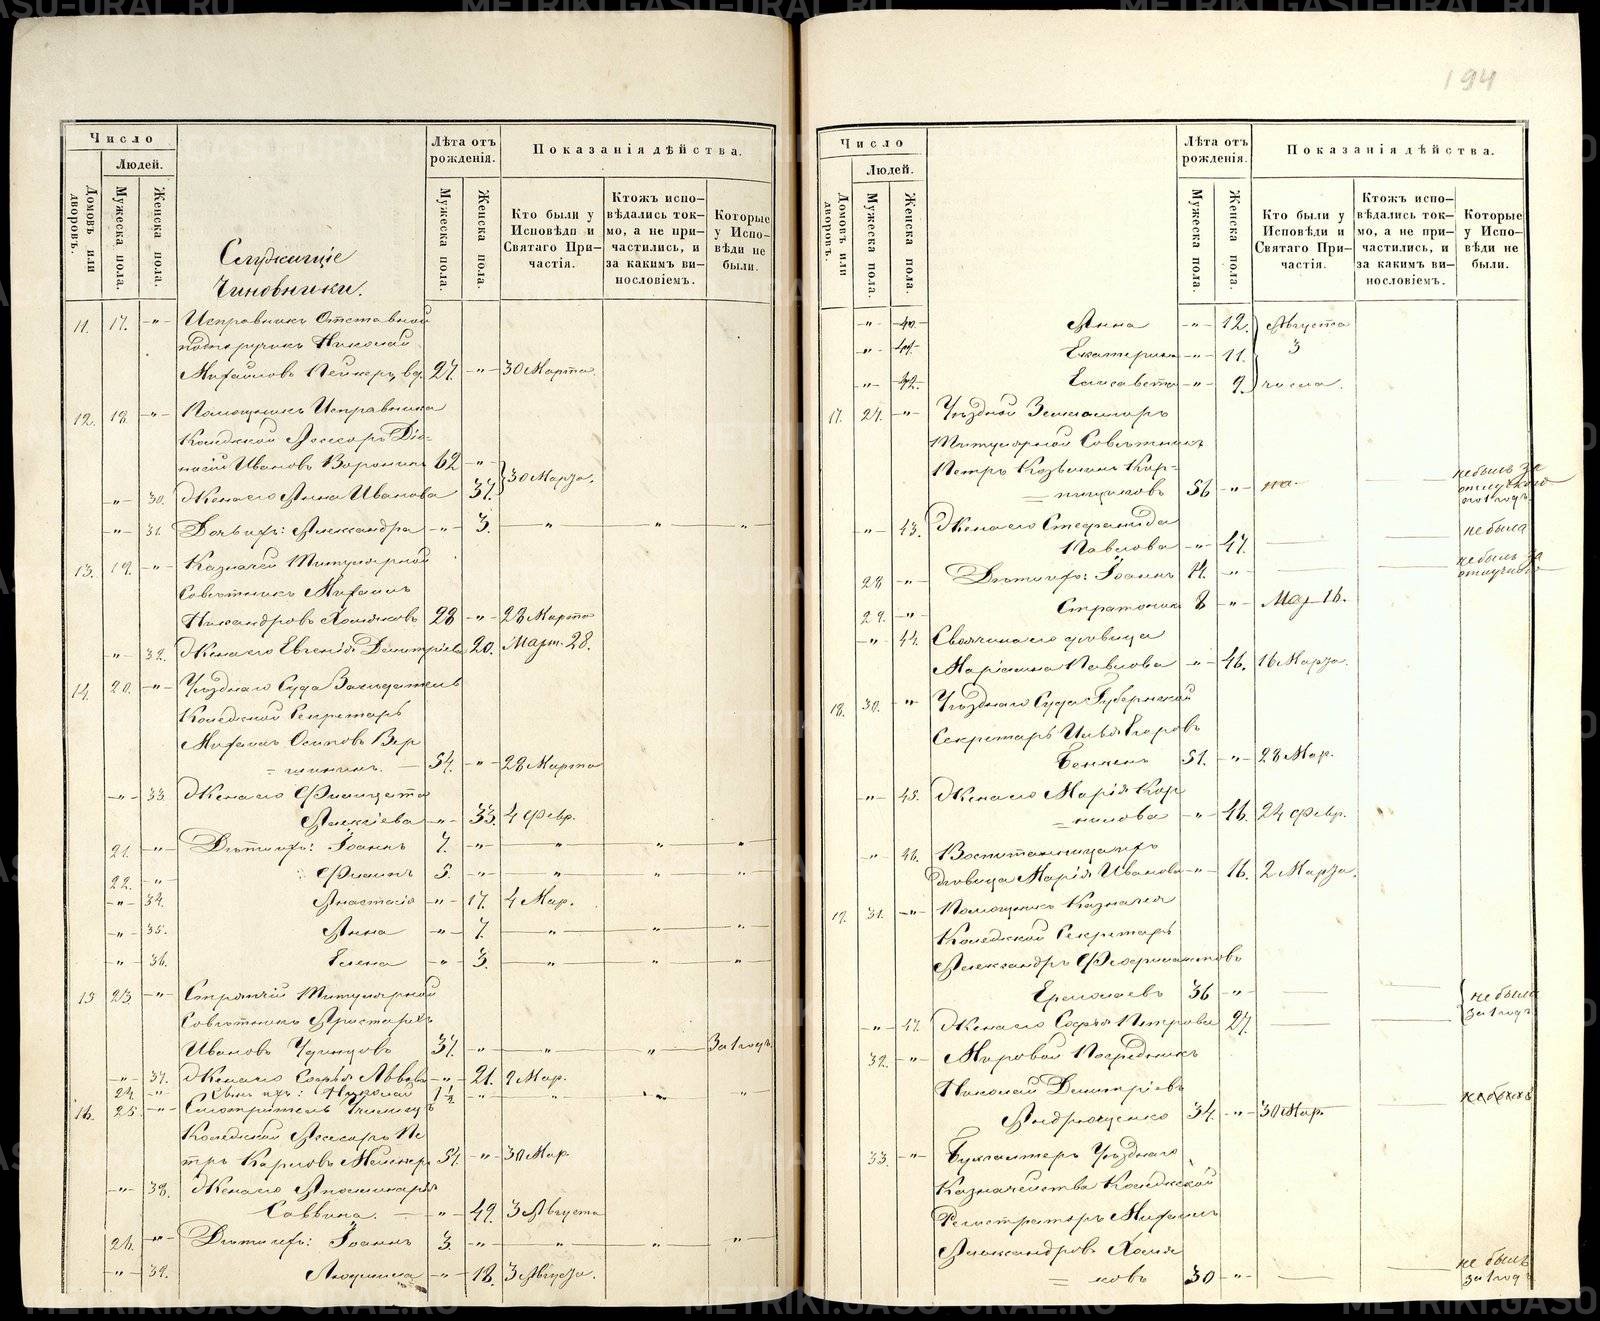 194
Число
Людей.
Домовъ или дворовъ.
Мужеска пола.
Женска пола.
Лѣта отъ рожденія.
Мужеска пола.
Женска пола.
Показанія дѣйства.
Кто были у Исповѣди и Святаго Причастія.
Ктожъ исповѣдались токмо, а не причастились, и за какимъ винословіемъ.
Которые у Исповѣди не были.
Служащіе
Чиновники.
11. 17. -"- Исправникъ Отставной
подпоручикъ Николай
Михайловъ 27. -"- 30 Марта.
12. 18. -"- Помощникъ Исправника
Коллежской Ассесоръ Діо-
нисій Ивановъ Воронинъ 62 -"-
30 Марта.
-"- 30. Жена его Анна Иванова 37.
-"- 31. Дочь ихъ: Александра -"- 3. " " "
13. 19. -"- Казначей Титулярной
Совѣтникъ Михаилъ
Никандровъ Хомяковъ 28 -"- 28 Марта
-"- 32. Жена его Евгенія Димитріева 20. Март. 28.
14. 20. -"- Уѣзднаго Суда Засѣдатель
Коллежской Секретарь
Михаилъ Осиповъ Вер
= шининъ. 54. -"- 28 Марта
-"- 33. Жена его Филицата
Алексіева -"- 33. 4 Февр.
21. -"- Дѣти ихъ: Іоаннъ 7. -"- " " "
22. -"- Филипъ 5. -"- " " "
-"- 34. Анастасія -"- 17. 4 Мар.
-"- 35. Анна -"- 7. " " "
-"- 36. Елена -"- 3. " " "
15 23. -"- Стряпчій Титулярной
Совѣтникъ Аристархъ
Ивановъ Удинцовъ 37. -"- " " За 1 годъ
-"- 37. Жена его Софья Львова -"- 21. 9 Мар.
24. -"- Сынъ ихъ: Николай 1½ -"- " " "
16. 25. -"- Смотритель Училищъ
Коллежской Ассесоръ Пе
тръ Карловъ 54. -"- 30 Мар.
-"- 38. Жена его Аполинарія
Саввина. -"- 49. 3 Августа
26. -"- Дѣти ихъ: Іоаннъ 3. -"- " " "
-"- 39. Людмила -"- 18. 3 Августа.
Число
Людей.
Домовъ или дворовъ.
Мужеска пола.
Женска пола.
Лѣта отъ рожденія.
Мужеска пола.
Женска пола.
Показанія дѣйства.
Кто были у Исповѣди и Святаго Причастія.
Ктожъ исповѣдались токмо, а не причастились, и за какимъ винословіемъ.
Которые у Исповѣди не были.
-"- 40. Анна -"- 12. Августа
-"- 41. Екатерина -"- 11. 3
-"- 42. Елисавета -"- 9. числа.
17. 27. -"- Уѣздной Землемѣръ
Титулярной Совѣтникъ
Петръ Козьминъ Кор-
= ниловъ 56 -"- не былъ за
отлучкою
за 1 годъ.
-"- 43. Жена его Стефанида
Павлова -"- 47. не была
28 -"- Дѣти ихъ: Іоаннъ 14. -"- не былъ за
отлучкою
29. -"- Стратоникъ 8 -"- Мар 16.
-"- 44. Своячина его дѣвица
Маріанна Павлова -"- 46. 16 Марта.
18. 30. -"- Уѣзднаго Суда Губернской
Секретарь Илья Егоровъ
51. -"- 28 Мар.
-"- 45. Жена его Марія Кор
= нилова -"- 46. 24 Февр.
-"- 46. Воспитанница ихъ
дѣвица Марія Иванова -"- 16. 2 Марта.
19. 31. -"- Помощникъ Казначея
Коллежской Секретарь
Александръ Феофилактовъ
Ермолаевъ 36 -"- не были
за 1 годъ
-"- 47. Жена его Софья Петрова 27.
32. -"- Мировой Посредникъ
Николай Димитріевъ
Андрющенко 34. -"- 30 Мар.
33. -"- Бухгалтеръ Уѣзднаго
Казначейства Коллежской
Регистраторъ Михаилъ
Александровъ Хомя
= ковъ 30 -"- не былъ
за 1 годъ
METRIKI.GASU-URAL.RU